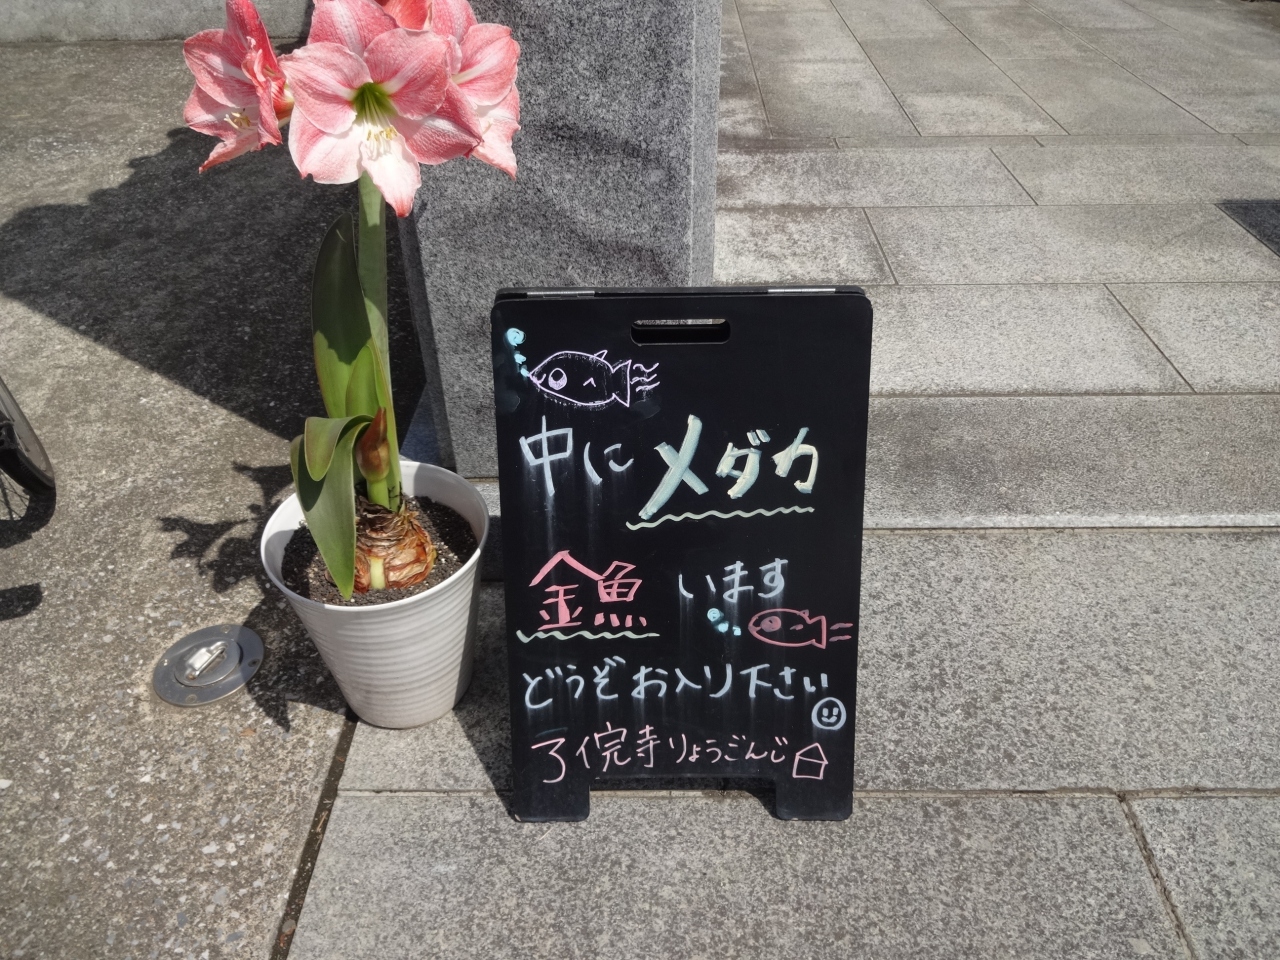 中にメダカ
金魚います
どうぞお入り下さい
了俒寺りょうごんじ